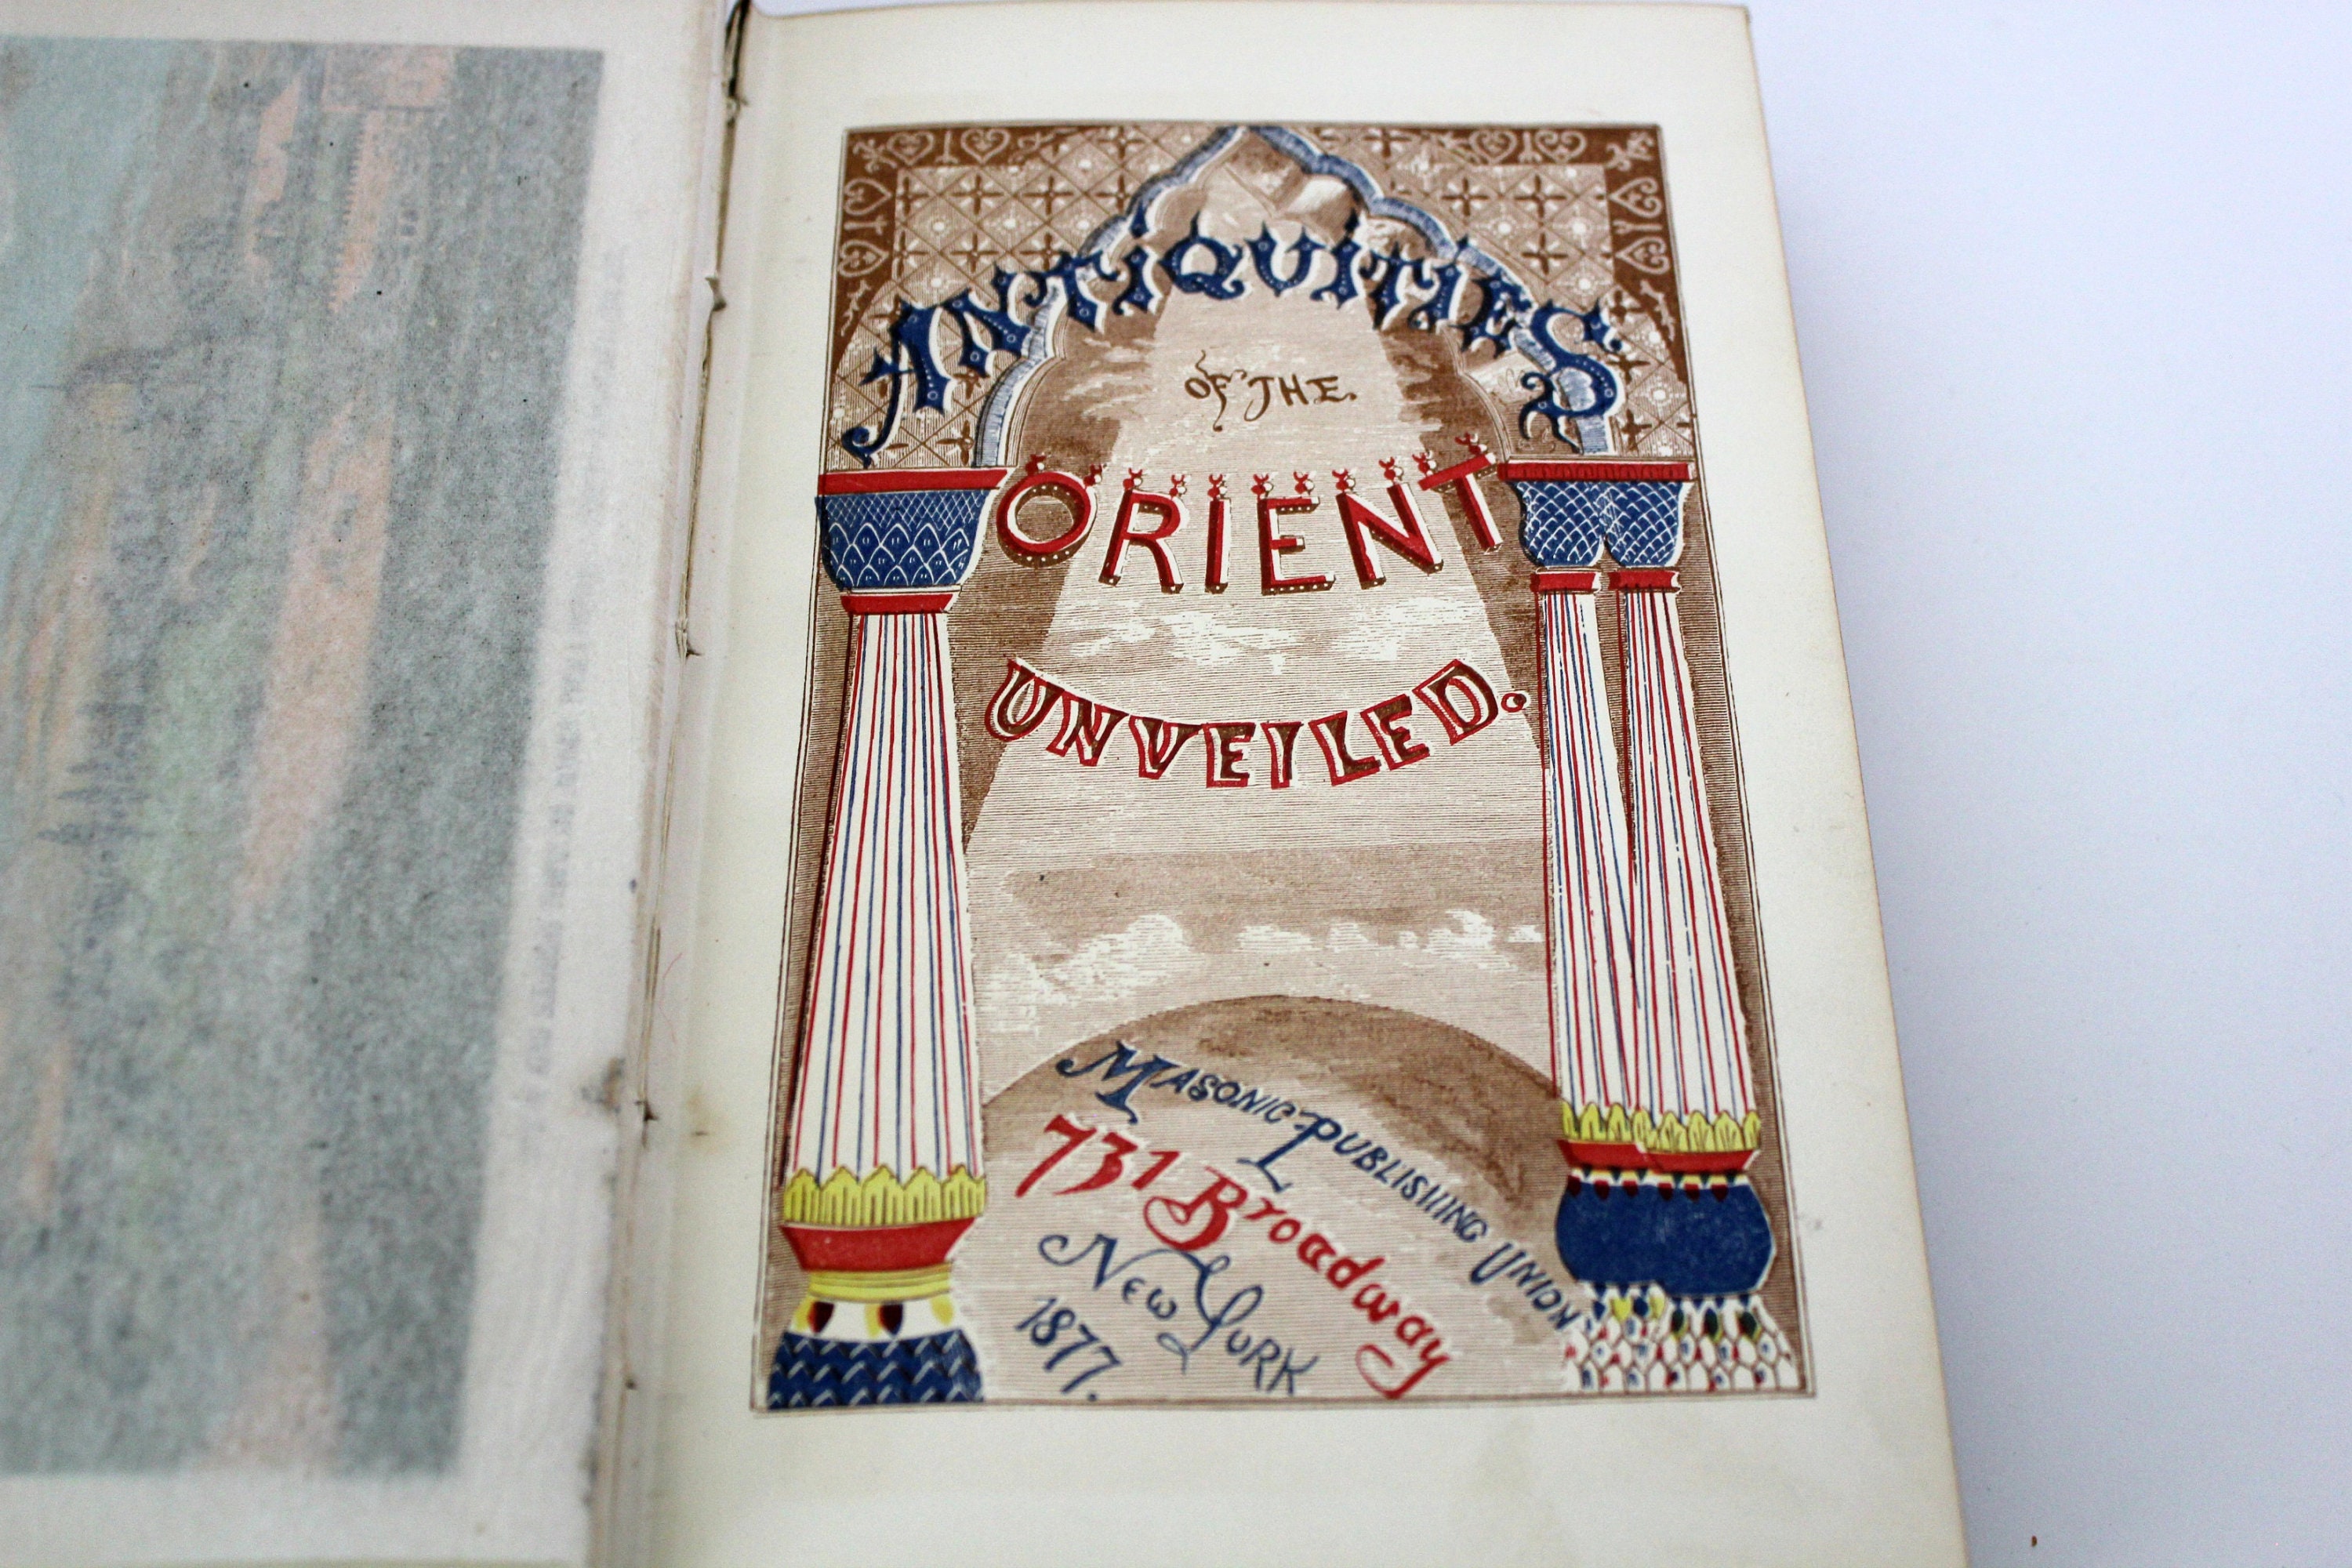 ANTIQUITIES
OF THE
ORIENT
UNVEILED.
MASONIC PUBLISHING UNION
731 Broadway
NEW YORK
1877.